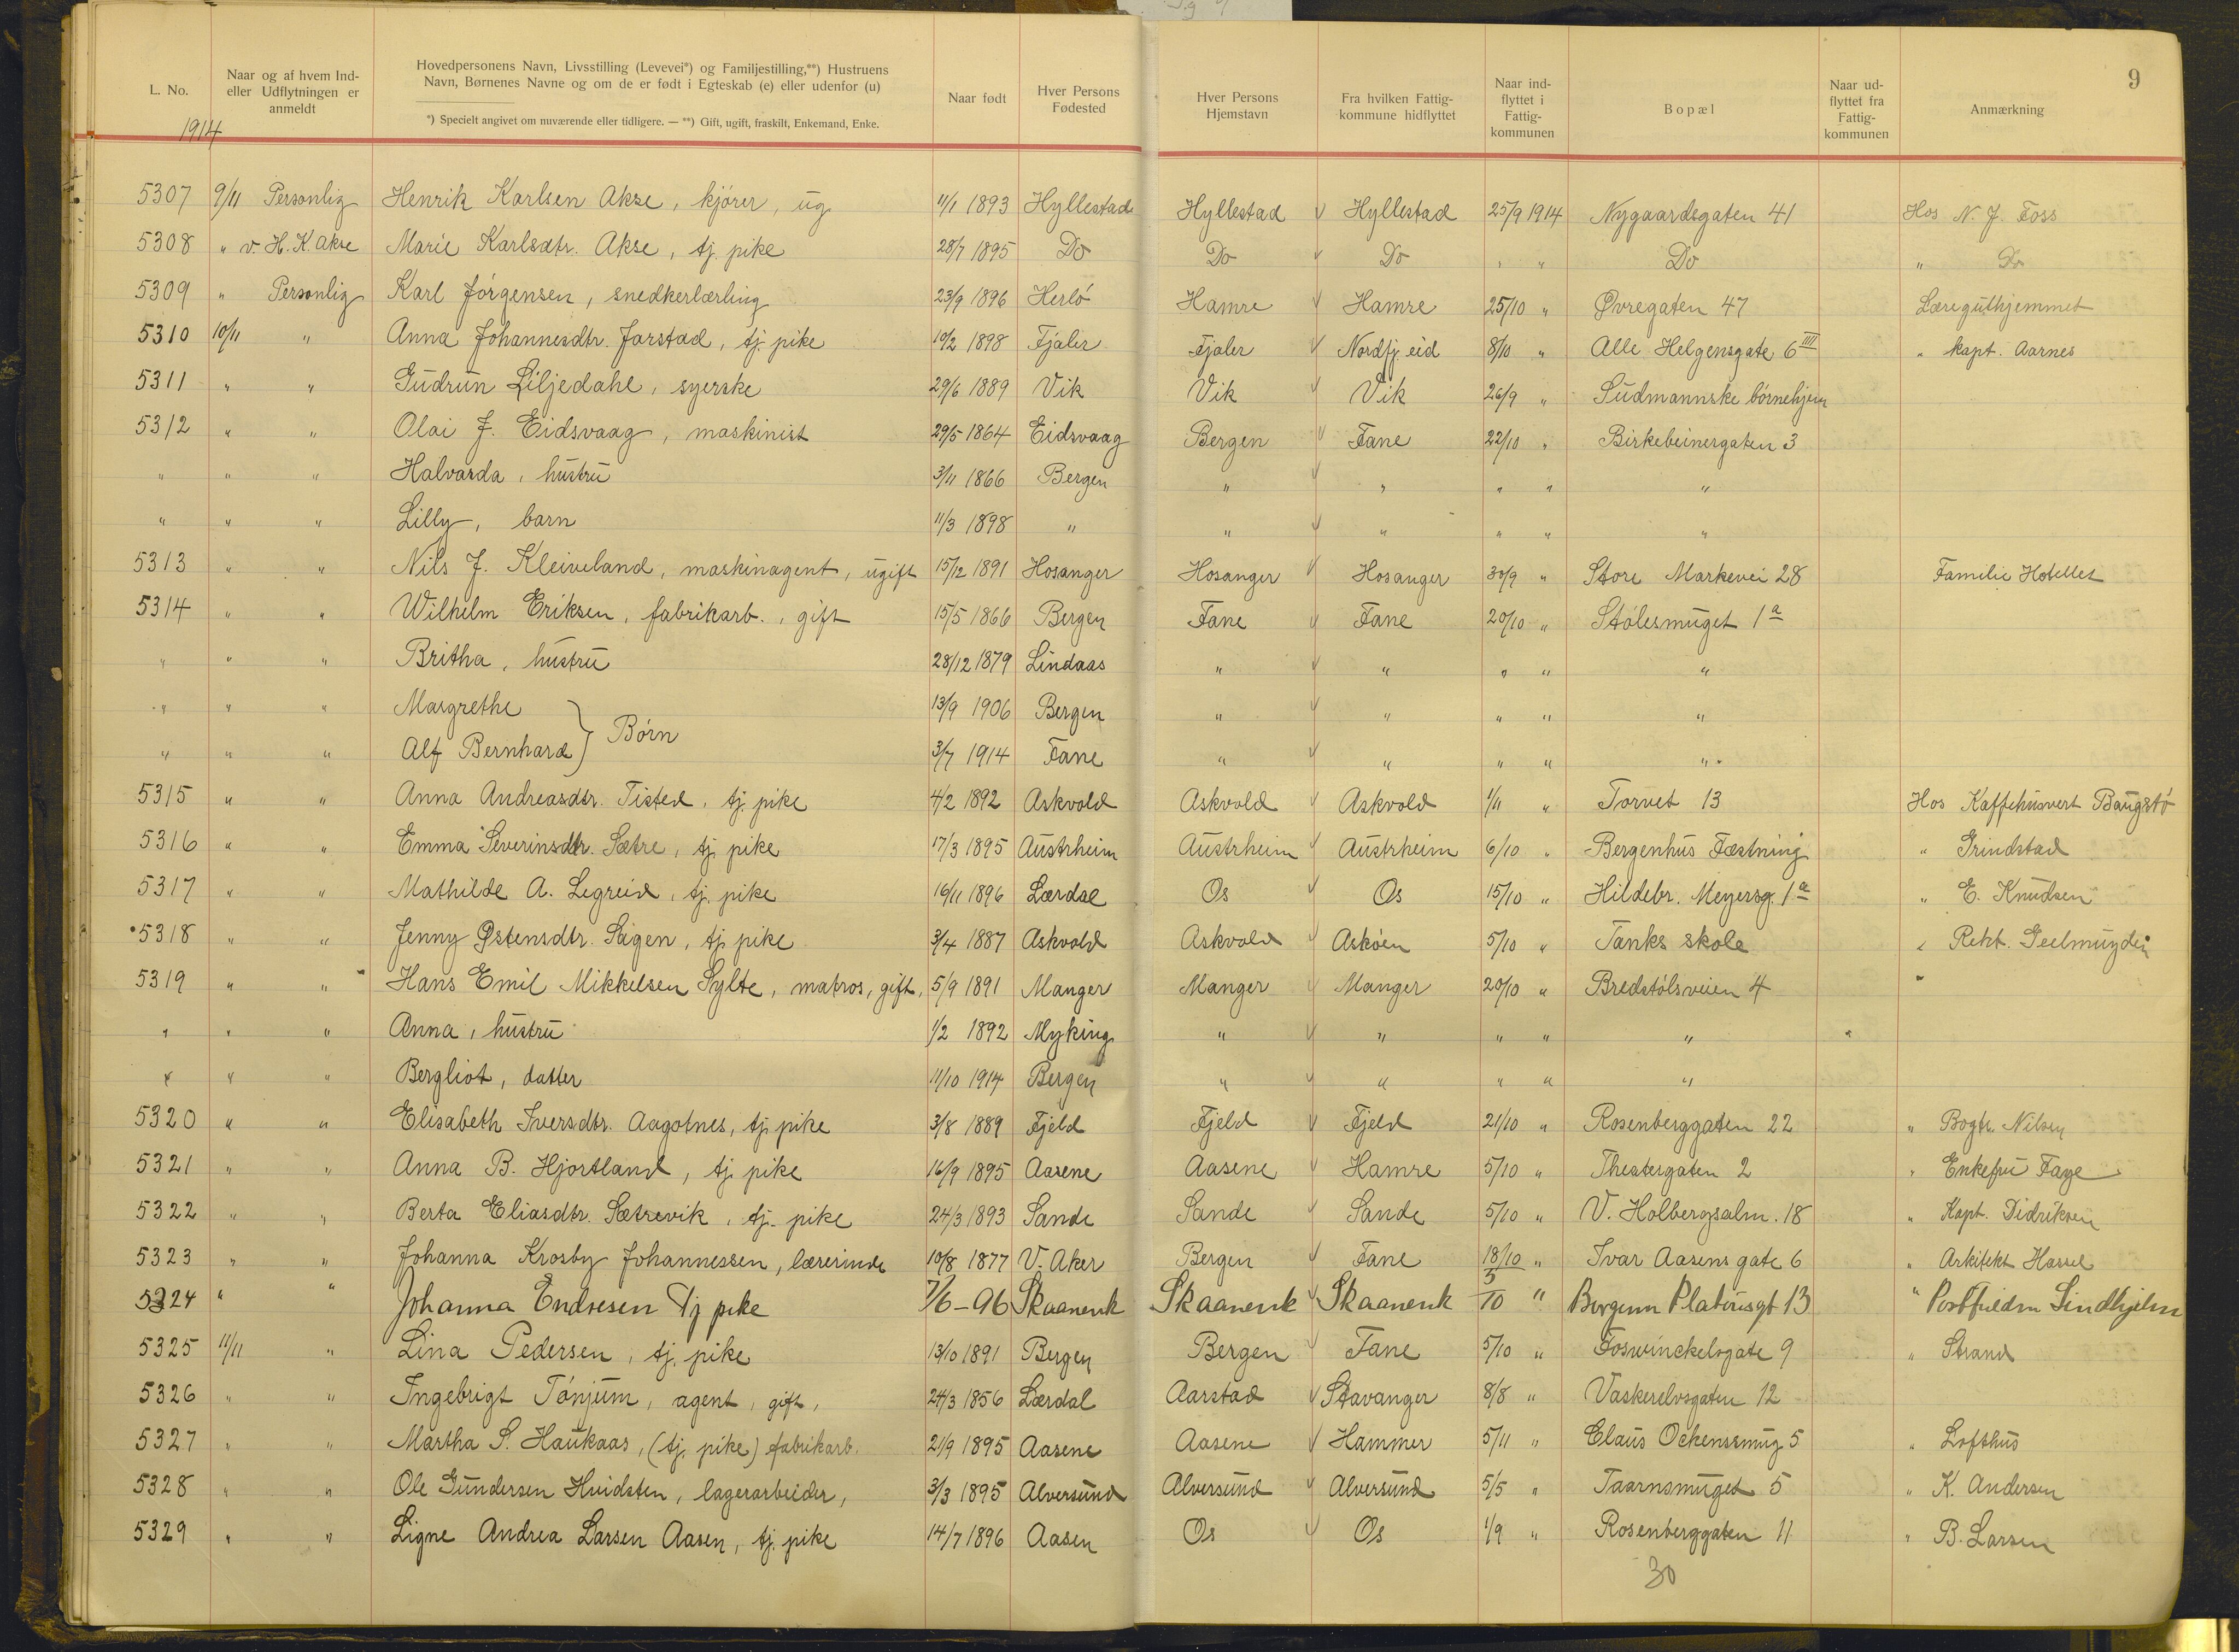 9
L. No.
Naar og af hvem Ind-
eller Udflytningen er
anmeldt
Hovedpersonens Navn, Livsstilling (Levevei*) og Familjestilling,**) Hustruens
Navn, Børnenes Navne og om de er født i Egteskab (e) eller udenfor (u)
*) Specielt angivet om nuværende eller tidligere. — **) Gift, ugift, fraskilt, Enkemand, Enke.
Naar født
Hver Persons
Fødested
Hver Persons
Hjemstavn
Fra hvilken Fattig-
kommune hidflyttet
Naar ind-
flyttet i
Fattig-
kommunen
Bopæl
Naar ud-
flyttet fra
Fattig-
kommunen
Anmærkning
1914
5307 9/11 Personlig Henrik Karlsen Akse, kjörer, ug 11/1 1893 Hyllestad Hyllestad Hyllestad 25/9 1914 Nygaardsgaten 41 Hos N. J. Foss
5308 " v. H. K. Akse Marie Karlsdtr. Akse, tj. pike 28/7 1895 Do Do Do " " Do " Do
5309 " Personlig Karl Jörgensen, snedkerlærling 23/9 1896 Herlö Hamre Hamre 25/10 " Øvregaten 47 Læreguthjemmet
5310 10/11 " Anna Johannesdtr. Jarstad, tj. pike 19/2 1898 Fjaler Fjaler Nordfj. eid 8/10 " Alle Helgensgate 6 III " Kapt. Aarnes
5311 " " Gudrun Liljedahl, syerske 29/6 1889 Vik Vik Vik 26/9 " Sudmannske börnehjem
5312 " " Olai J. Eidsvaag, maskinist 29/5 1864 Eidsvaag Bergen Fane 22/10 " Birkebeinergaten 3
" " " Halvarda, hustru 3/11 1866 Bergen " " " " "
" " " Lilly, barn 11/3 1898 " " " " " "
5313 " " Nils J. Kleiveland, maskinagent, ugift 15/12 1891 Hosanger Hosanger Hosanger 30/9 " Store Markevei 28 Familie Hotellet
5314 " " Wilhelm Eriksen, fabrikarb., gift 15/5 1866 Bergen Fane Fane 20/10 " Stölesmuget 1a
" " " Britha, hustru 28/12 1879 Lindaas " " " " "
" " " Margrethe } Börn 13/9 1906 Bergen " " " " "
" " " Alf Bernhard } 3/7 1914 Fane " " " " "
5315 " " Anna Andreasdtr. Tisted, tj. pike 4/2 1892 Askvold Askvold Askvold 1/11 " Torvet 13 Hos Kaffehusvert Baugstö
5316 " " Emma Severinsdtr. Sætre, tj. pike 17/3 1895 Austrheim Austrheim Austrheim 6/10 " Bergenhus Fæstning " Grindstad
5317 " " Mathilde A. Legreid, tj. pike 16/11 1896 Lærdal Os Os 15/10 " Hildebr. Meyersg. 1a " E. Knudsen
5318 " " Jenny Østensdtr. Sägen, tj. pike 3/4 1887 Askvold Askvold Asköen 5/10 " Tanks skole " Rekt. Geelmuyden
5319 " " Hans Emil Mikkelsen Sylte, matros, gift, 5/9 1891 Manger Manger Manger 20/10 " Bredstölsveien 4 "
" " " Anna, hustru 1/2 1892 Myking " " " " " "
" " " Bergliot, datter 11/10 1914 Bergen " " " " "
5320 " " Elisabeth Iversdtr. Aagotnes, tj. pike 3/8 1889 Fjeld Fjeld Fjeld 21/10 " Rosenberggaten 22 " Bogtr. Nilsen
5321 " " Anna B. Hjortland, tj. pike 16/9 1895 Aasene Aasene Hamre 5/10 " Theatergaten 2 " Enkefru Faye
5322 " " Berta Eliasdtr. Sætrevik, tj. pike 24/3 1893 Sande Sande Sande 5/10 " V. Holbergsalm. 18 " Kapt. Didriksen
5323 " " Johanna Krosby Johannessen, lærerinde 10/8 1877 V. Aker Bergen Fane 18/10 " Ivar Aasens gate 6 " Arkitekt Hassel
5324 " " Johanna Endresen Tj pike 7/6-96 Skaanevik Skaanevik Skaanevik 5/10 " Platousgt 13 " Lindhjelm
5325 11/11 " Lina Pedersen, tj. pike 13/10 1891 Bergen Bergen Fane 5/10 " Foswinckelsgate 9 " Strand
5326 " " Ingebrigt Tönjum, agent, gift, 24/3 1856 Lærdal Aarstad Stavanger 8/8 " Vaskerelvsgaten 12
5327 " " Martha S. Haukaas, (tj. pike) fabrikarb. 21/9 1895 Aasene Aasene Hammer 5/11 " Claus Ockenssmug 5 " Lofthus
5328 " " Ole Gundersen Hvidsten, lagerarbeider, 3/3 1895 Alversund Alversund Alversund 5/5 " Taarnsmuget 5 " K. Andersen
5329 " " Signe Andrea Larsen Aasen, tj. pike 14/7 1896 Aasen Os Os 1/9 " Rosenberggaten 11 " B. Larsen
30